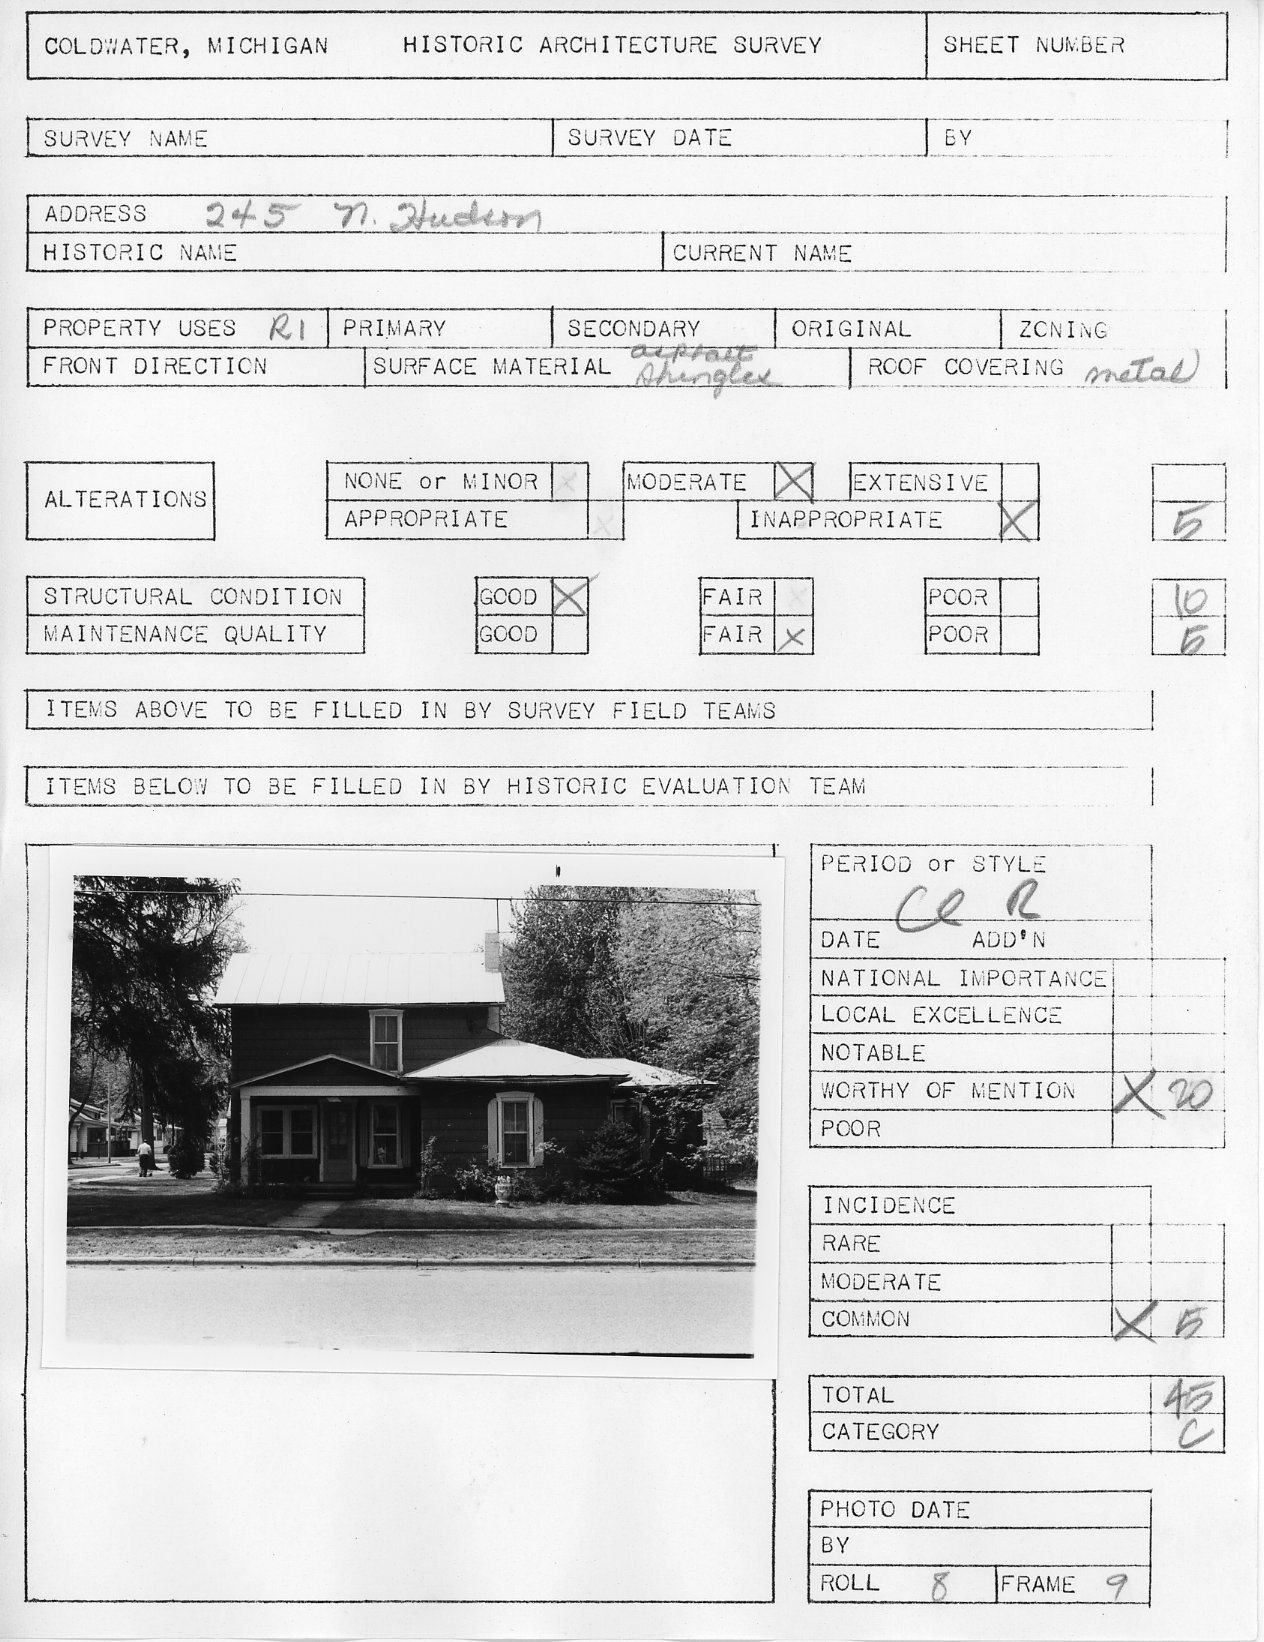 COLDWATER, MICHIGAN HISTORIC ARCHITECTURE SURVEY SHEET NUMBER
SURVEY NAME SURVEY DATE BY
ADDRESS 245 N. Hudson
HISTORIC NAME CURRENT NAME
PROPERTY USES R1 PRIMARY SECONDARY ORIGINAL ZONING
FRONT DIRECTION SURFACE MATERIAL asphalt shingles ROOF COVERING metal
ALTERATIONS NONE or MINOR MODERATE X EXTENSIVE
APPROPRIATE INAPPROPRIATE X 5
STRUCTURAL CONDITION GOOD X FAIR POOR 10
MAINTENANCE QUALITY GOOD FAIR X POOR 5
ITEMS ABOVE TO BE FILLED IN BY SURVEY FIELD TEAMS
ITEMS BELOW TO BE FILLED IN BY HISTORIC EVALUATION TEAM
PERIOD or STYLE
R
DATE ADD'N
NATIONAL IMPORTANCE
LOCAL EXCELLENCE
NOTABLE
WORTHY OF MENTION X 20
POOR
INCIDENCE
RARE
MODERATE
COMMON X 5
TOTAL 45
CATEGORY C
PHOTO DATE
BY
ROLL 8 FRAME 9